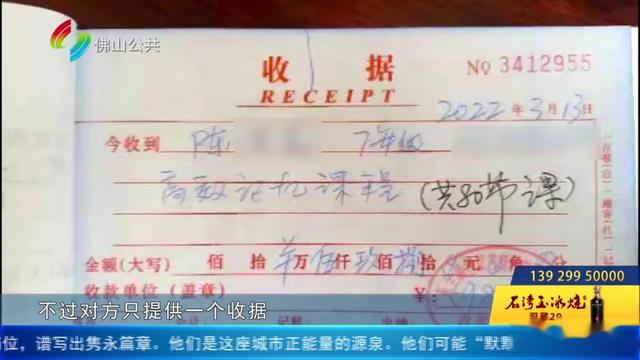 佛山公共
收 据
NO 3412955
RECEIPT
2022年3月13日
今收到 陈 7年级
高效记忆课程(共80节课)
金额(大写) 佰 拾 万伍仟玖佰 拾 元 角 分
收款单位(盖章) ¥
139 299 50000
石湾玉冰烧
不过对方只提供一个收据
位，谱写出隽永篇章。他们是这座城市正能量的源泉。他们可能“默默